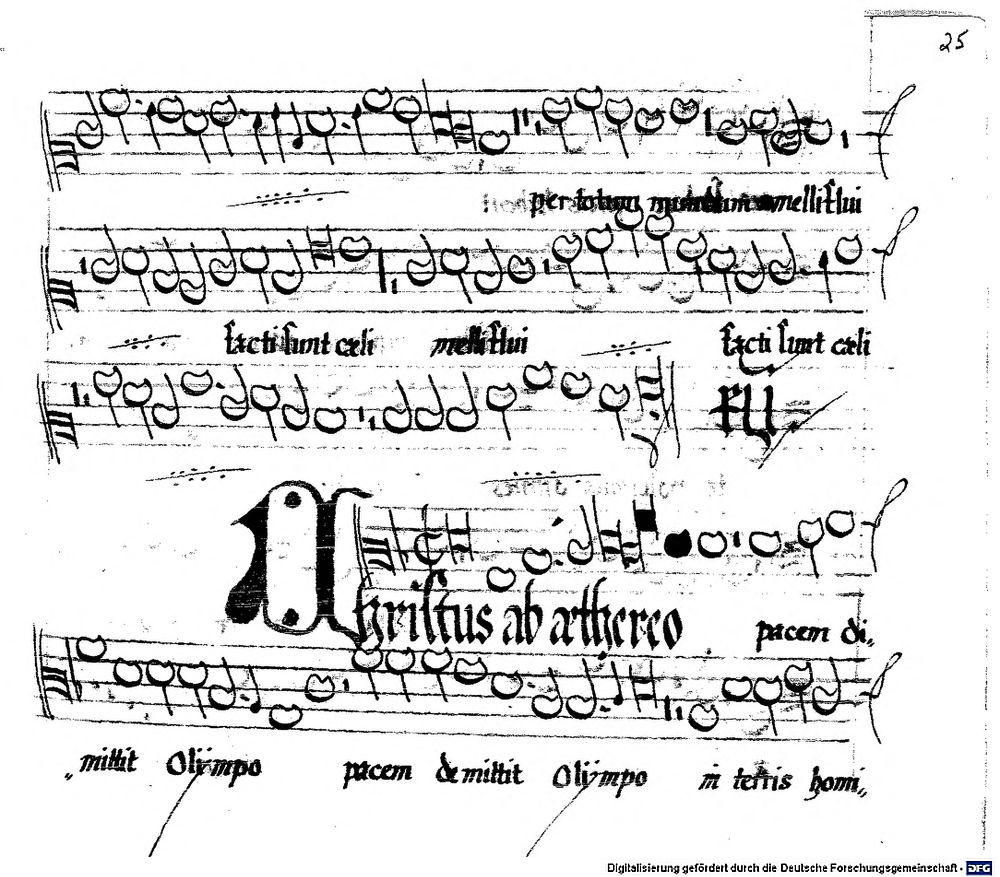 25
per totum mundum melliflui
facti sunt cæli melliflui facti sunt cæli
Christus ab æthereo pacem di„
„mittit Olÿmpo pacem demittit Olÿmpo in terris homi„
Digitalisierung gefördert durch die Deutsche Forschungsgemeinschaft - DFG